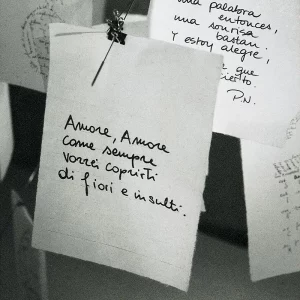 una palabra
entonces,
una sonrisa
bastan.
Y estoy alegre,
e que
cierto.
P.N.
Amore, Amore
come sempre
vorrei coprirti
di fiori e insulti.